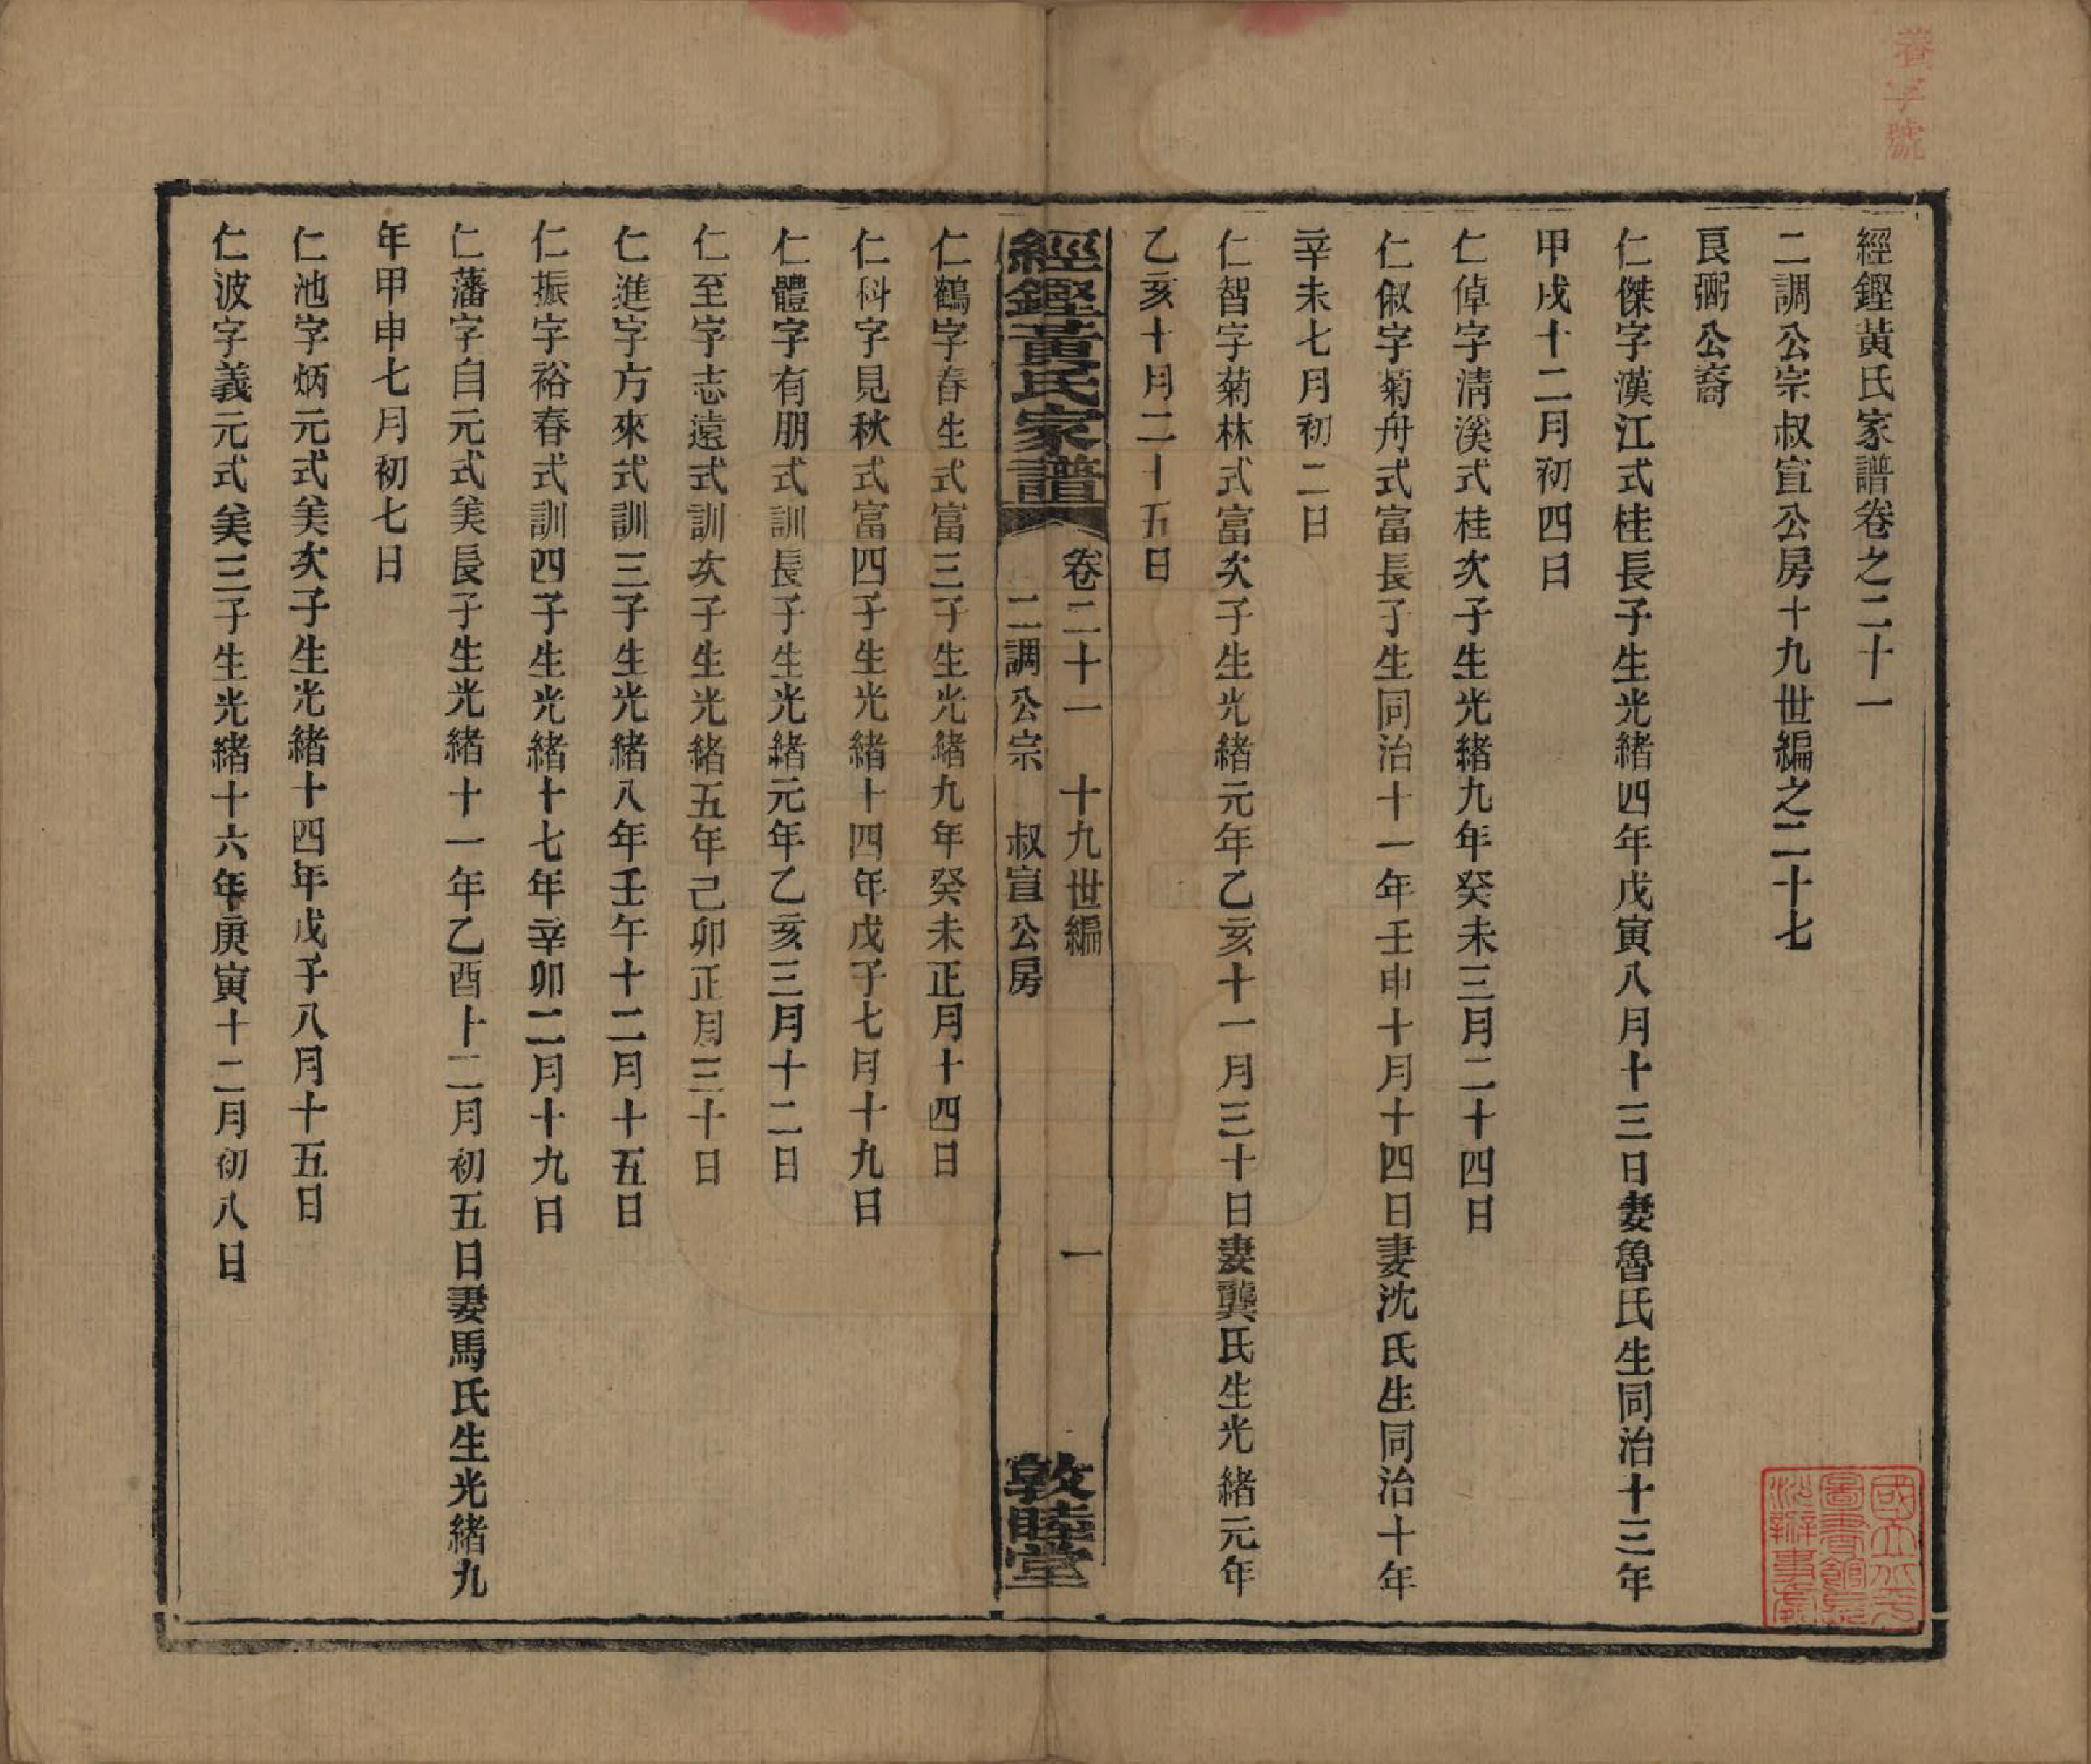 養字號
經鏗黃氏家譜卷之二十一
二調公宗叔宣公房十九世編之二十七
良弼公裔
仁傑字漢江式桂長子生光緒四年戊寅八月十三日妻魯氏生同治十三年
甲戌十二月初四日
仁倬字清溪式桂次子生光緒九年癸未三月二十四日
仁俶字菊舟式富長子生同治十一年壬申十月十四日妻沈氏生同治十年
辛未七月初二日
仁智字菊林式富次子生光緒元年乙亥十一月三十日妻龔氏生光緒元年
乙亥十月二十五日
經鏗黃氏家譜 卷二十一 十九世編 一
二調公宗 叔宣公房 敦睦堂
仁鶴字春生式富三子生光緒九年癸未正月十四日
仁科字見秋式富四子生光緒十四年戊子七月十九日
仁體字有朋式訓長子生光緒元年乙亥三月十二日
仁至字志遠式訓次子生光緒五年己卯正月三十日
仁進字方來式訓三子生光緒八年壬午十二月十五日
仁振字裕春式訓四子生光緒十七年辛卯二月十九日
仁藩字自元式美長子生光緒十一年乙酉十二月初五日妻馬氏生光緒九
年甲申七月初七日
仁池字炳元式美次子生光緒十四年戊子八月十五日
仁波字義元式美三子生光緒十六年庚寅十二月初八日
國立北平
圖書館
辦事處